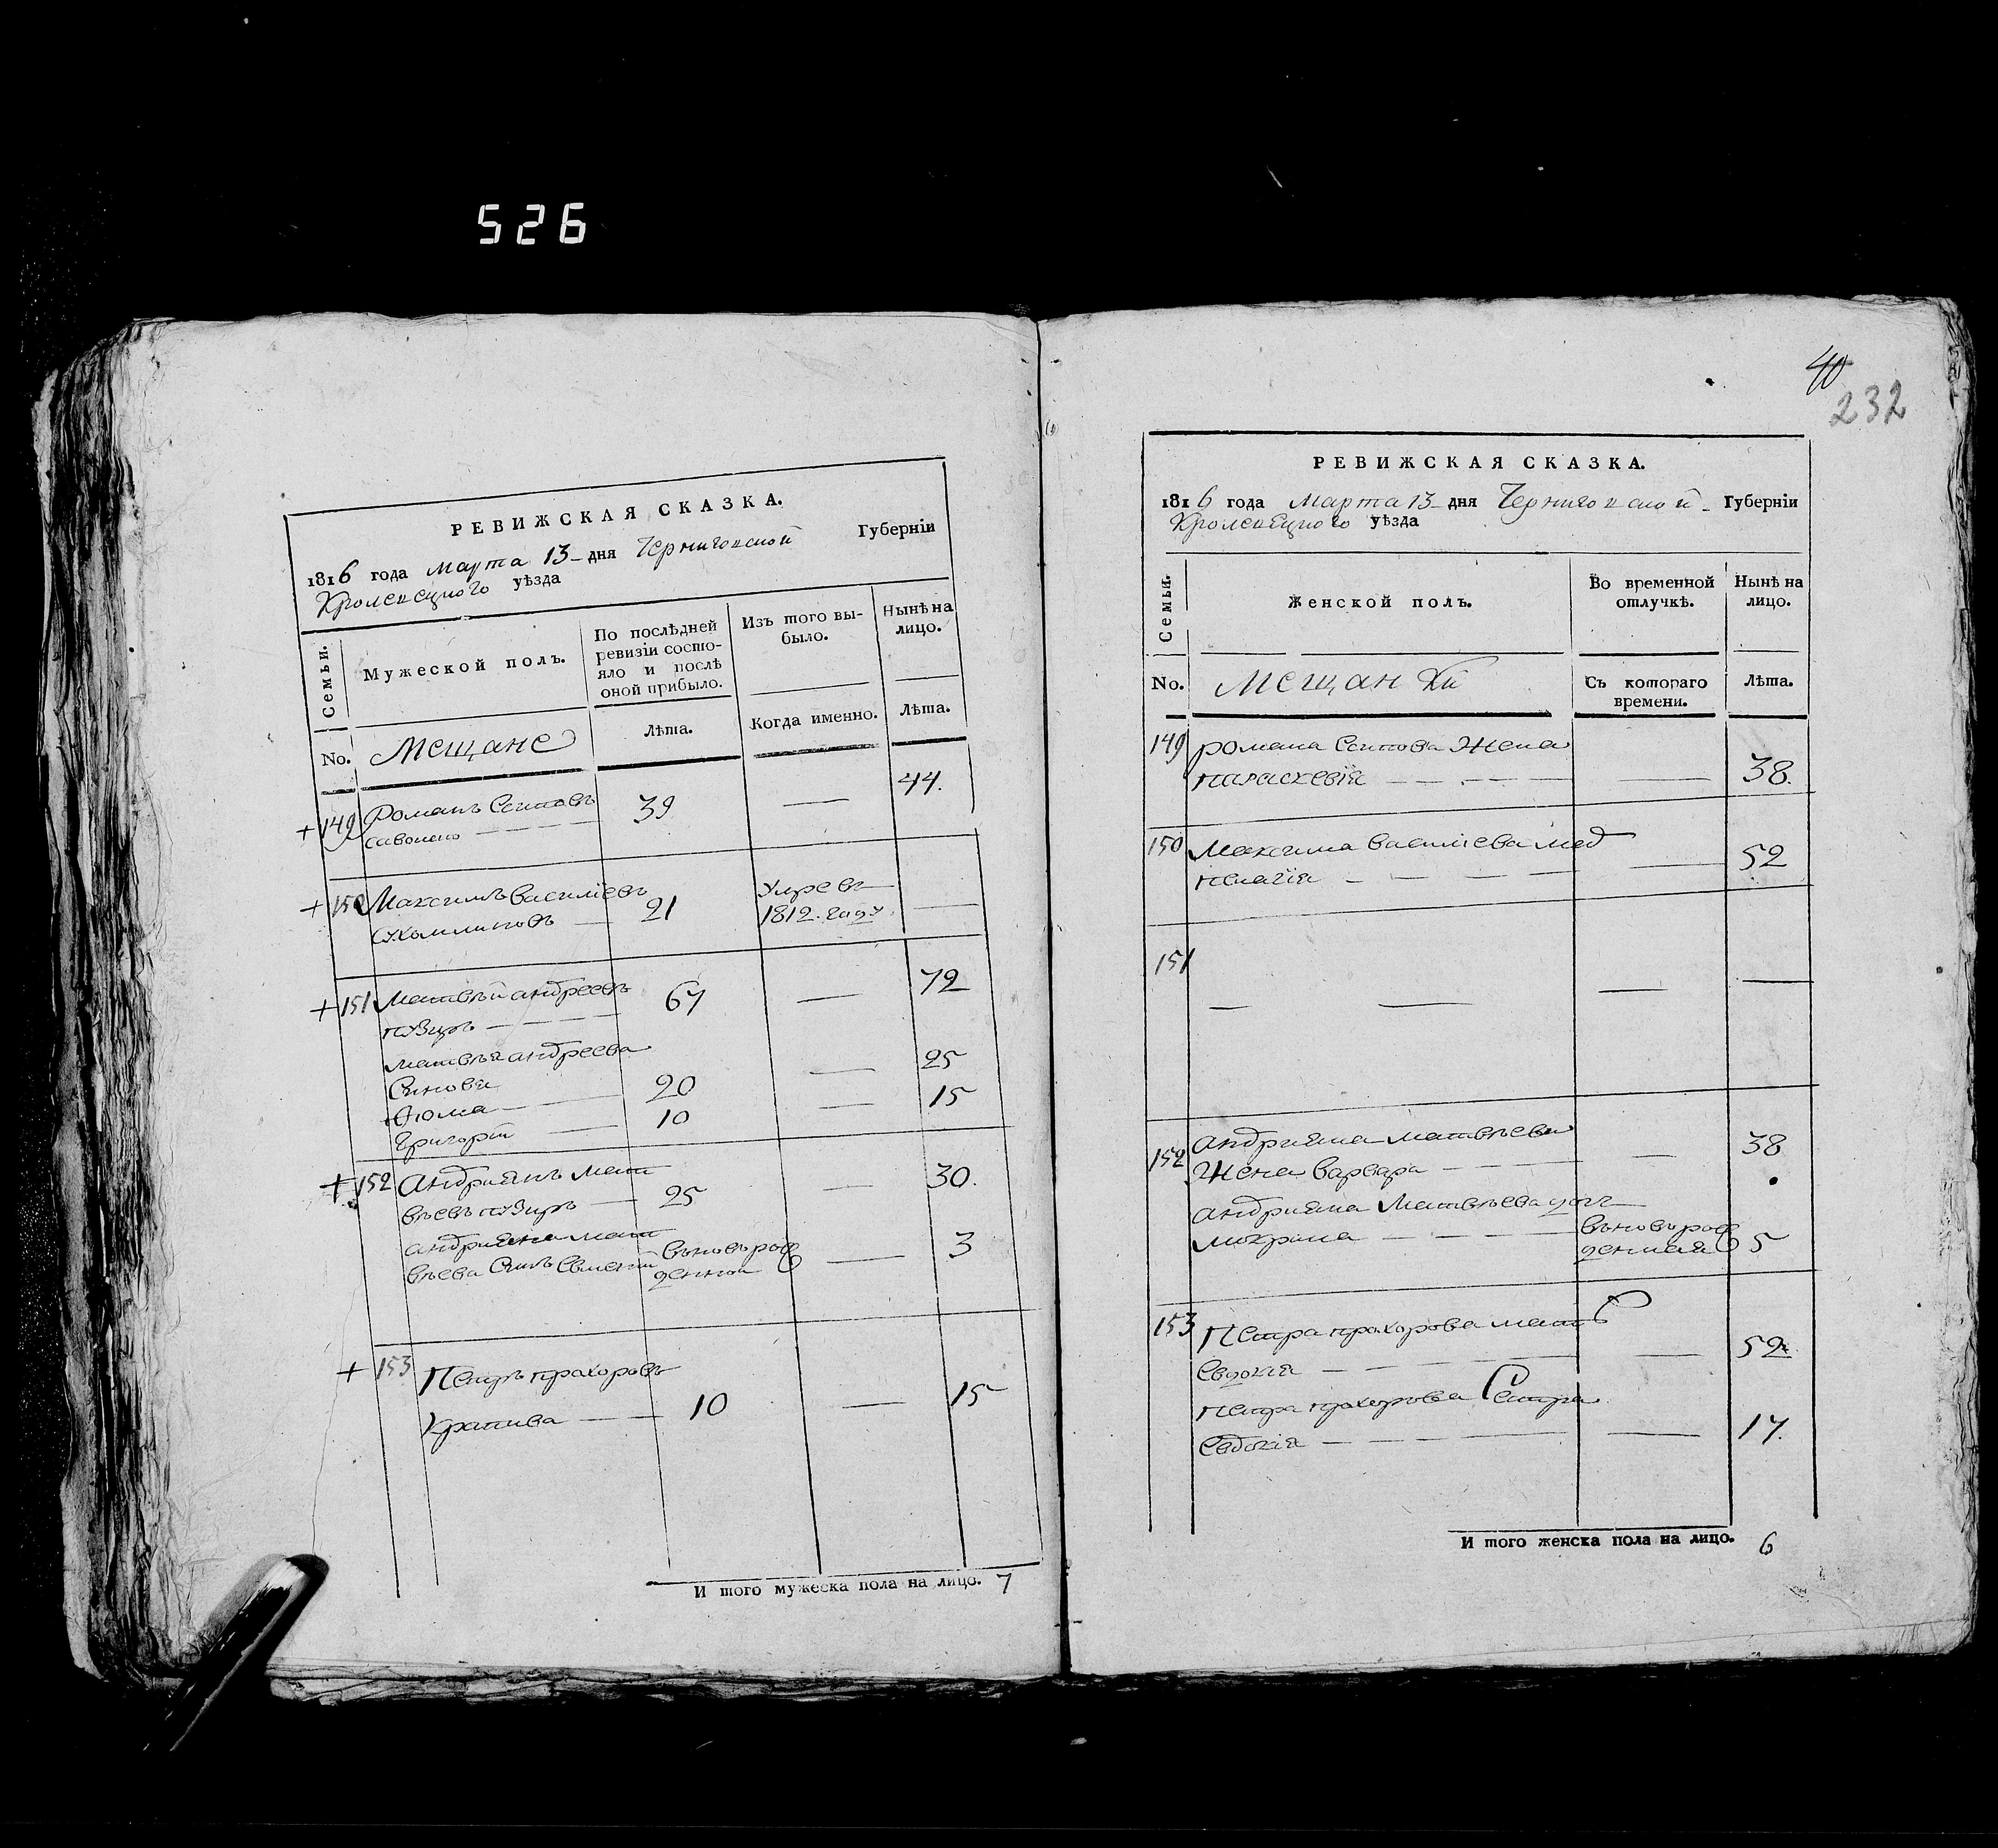 526
РЕВИЖСКАЯ СКАЗКА.
1816 года Марта 13 дня Черниговской Губерніи
Кролевецкого уѣзда
Семьи.
Мужеской полъ.
По послѣдней
ревизіи состо-
яло и послѣ
оной прибыло.
Изъ того вы-
было.
Нынѣ на
лицо.
No.
Мещане
Лѣта.
Когда именно.
Лѣта.
+ 149 Романъ 39 — 44.
+ 150 Максимъ Василіевъ 21 Умре въ
1812. году. —
+ 151 Матвѣй андреевъ 67 — 72
пузиръ
матвѣя андреева
Синовя 20 — 25
Фома
Григорій 10 — 15
+ 152 Андриянъ Мат
вѣевъ пузиръ 25 — 30.
андрияна мат
вѣева Синъ Евмений вьновърож
денной — 3
+ 153 Петръ прахоровъ
Крапива 10 — 15
И того мужеска пола на лицо. 7
40
232
РЕВИЖСКАЯ СКАЗКА.
1816 года Марта 13 дня Черниговской Губерніи
Кролевецкого уѣзда
Семьи.
Женской полъ.
Во временной
отлучкѣ.
Нынѣ на
лицо.
No.
Мещанки
Съ котораго
времени.
Лѣта.
149 романа Жена
параскевія — 38.
150 Максима василіева
пелагія — 52
151 — — — —
152 андрияна матвѣева
Жена варвара — 38
андрияна Матвѣева доч
мокрина вьновърож
денная 5
153 Петра прахорова мать
Евдокія — 52.
петра прахорова Сестра
Евдокія — 17.
И того женска пола на лицо. 6